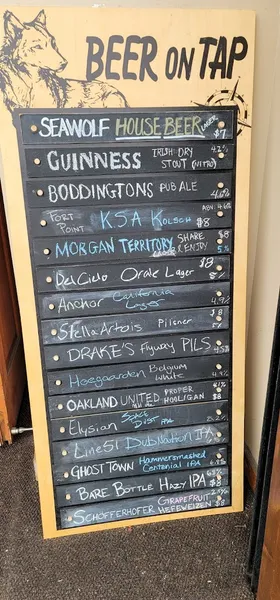 BEER ON TAP
SEAWOLF HOUSE BEER LAGER $7
GUINNESS IRISH DRY STOUT (NITRO) 4.2%
BODDINGTONS PUB ALE 4.6%
FORT POINT KSA KOLSCH ABV. 4.6% $8
MORGAN TERRITORY SHARE & ENJOY $8 5%
DelCielo Orale Lager $8
Anchor California Lager 4.9%
Stella Artois Pilsner $8
DRAKE'S Flyway PILS
Hoegaarden Belgium White 4.9%
OAKLAND UNITED PROPER HOOLIGAN $8
Elysian Space Dust IPA 8.2%
Line 51 DubNation IPA
GHOST TOWN Hammersmashed Centennial IPA
BARE BOTTLE HAZY IPA $8
SCHOFFERHOFER GRAPEFRUIT HEFEWEIZEN 2.5% $8